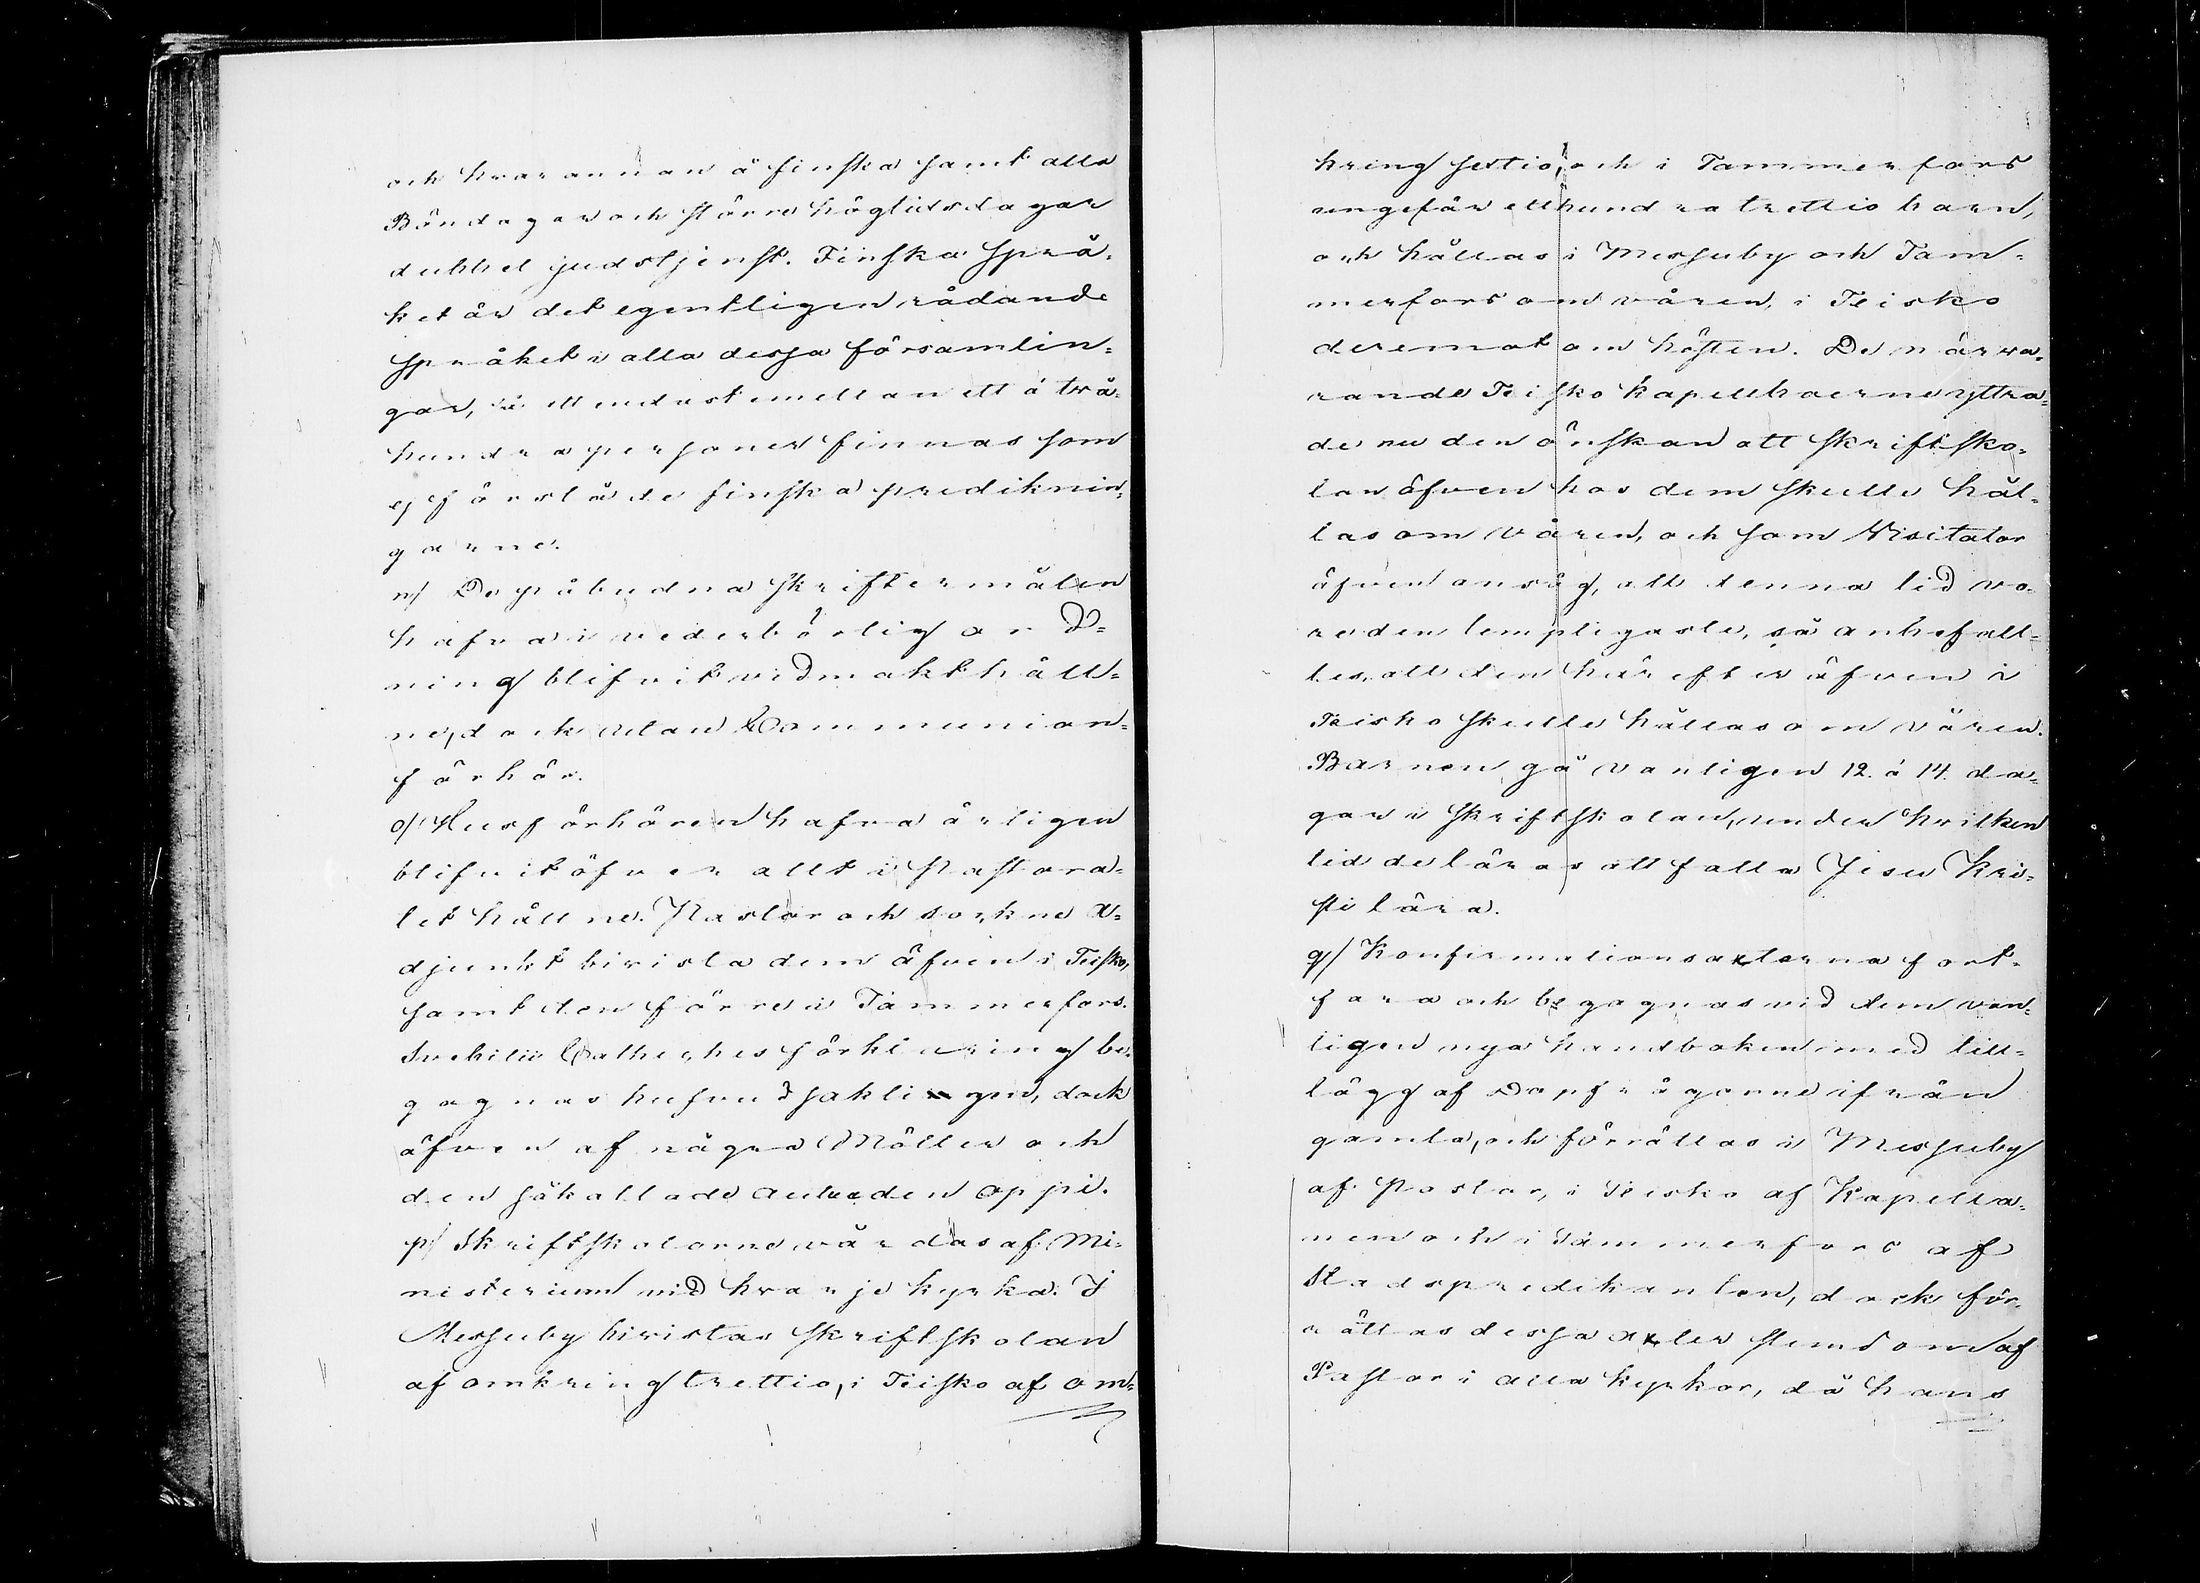 och hvarannan å finska samt alla
Böndagar och större högtidsdagar
dubbel gudstjenst. Finska språ-
ket är det egentligen rådande
språket i alla dessa församlin-
gar, så att endast emellan ett à två-
hundra personer finnas som
ej förstå de finska prediknin-
garne.
n/ De påbudna Skriftermålen
hafva i vederbörlig ord-
ning blifvit vidmakthåll-
ne, dock utan Communion-
förhör.
o/ Husförhören hafva årligen
blifvit öfver allt i Pastora-
let hållne. Pastor och sockne A-
djunkt bivista dem äfven i Teisko,
samt den förre i Tammerfors.
Svebilii Catheches förklaring be-
gagnas hufvudsakligen, dock
äfven af några Möller och
den såkallade Autuuden oppi.
p/ Skriftskolorne vårdas af Mi-
nisterium vid hvarje kyrka. I
Messuby bivistas Skriftskolan
af omkring trettio, i Teisko af om-
kring sextio, och i Tammerfors
ungefär etthundra trettio barn,
och hållas i Messuby och Tam-
merfors om våren, i Teisko
deremot om hösten. De närva-
rande Teisko kapellboerne yttra-
de nu den önskan att Skriftsko-
lan äfven hos dem skulle hål-
las om våren, och som Visitator
äfven ansåg, att denna tid vo-
re den lempligaste, så anbefall-
tes, att den härefter äfven i
Teisko skulle hållas om våren.
Barnen gå vanligen 12. à 14. da-
gar i Skriftskolan, under hvilken
tid de läras att fatta Jesu Kri-
sti lära.
q/ Konfirmationsakterna fort-
fara och begagnas vid dem van-
ligen nya handboken med till-
lägg af Dopfrågorne ifrån
gamla, och förrättas i Messuby
af Pastor, i Teisko af Kapella-
nen och i Tammerfors af
Stadspredikanten, dock för-
rättas dessa akter stundom af
Pastor i alla kyrkor, då hans